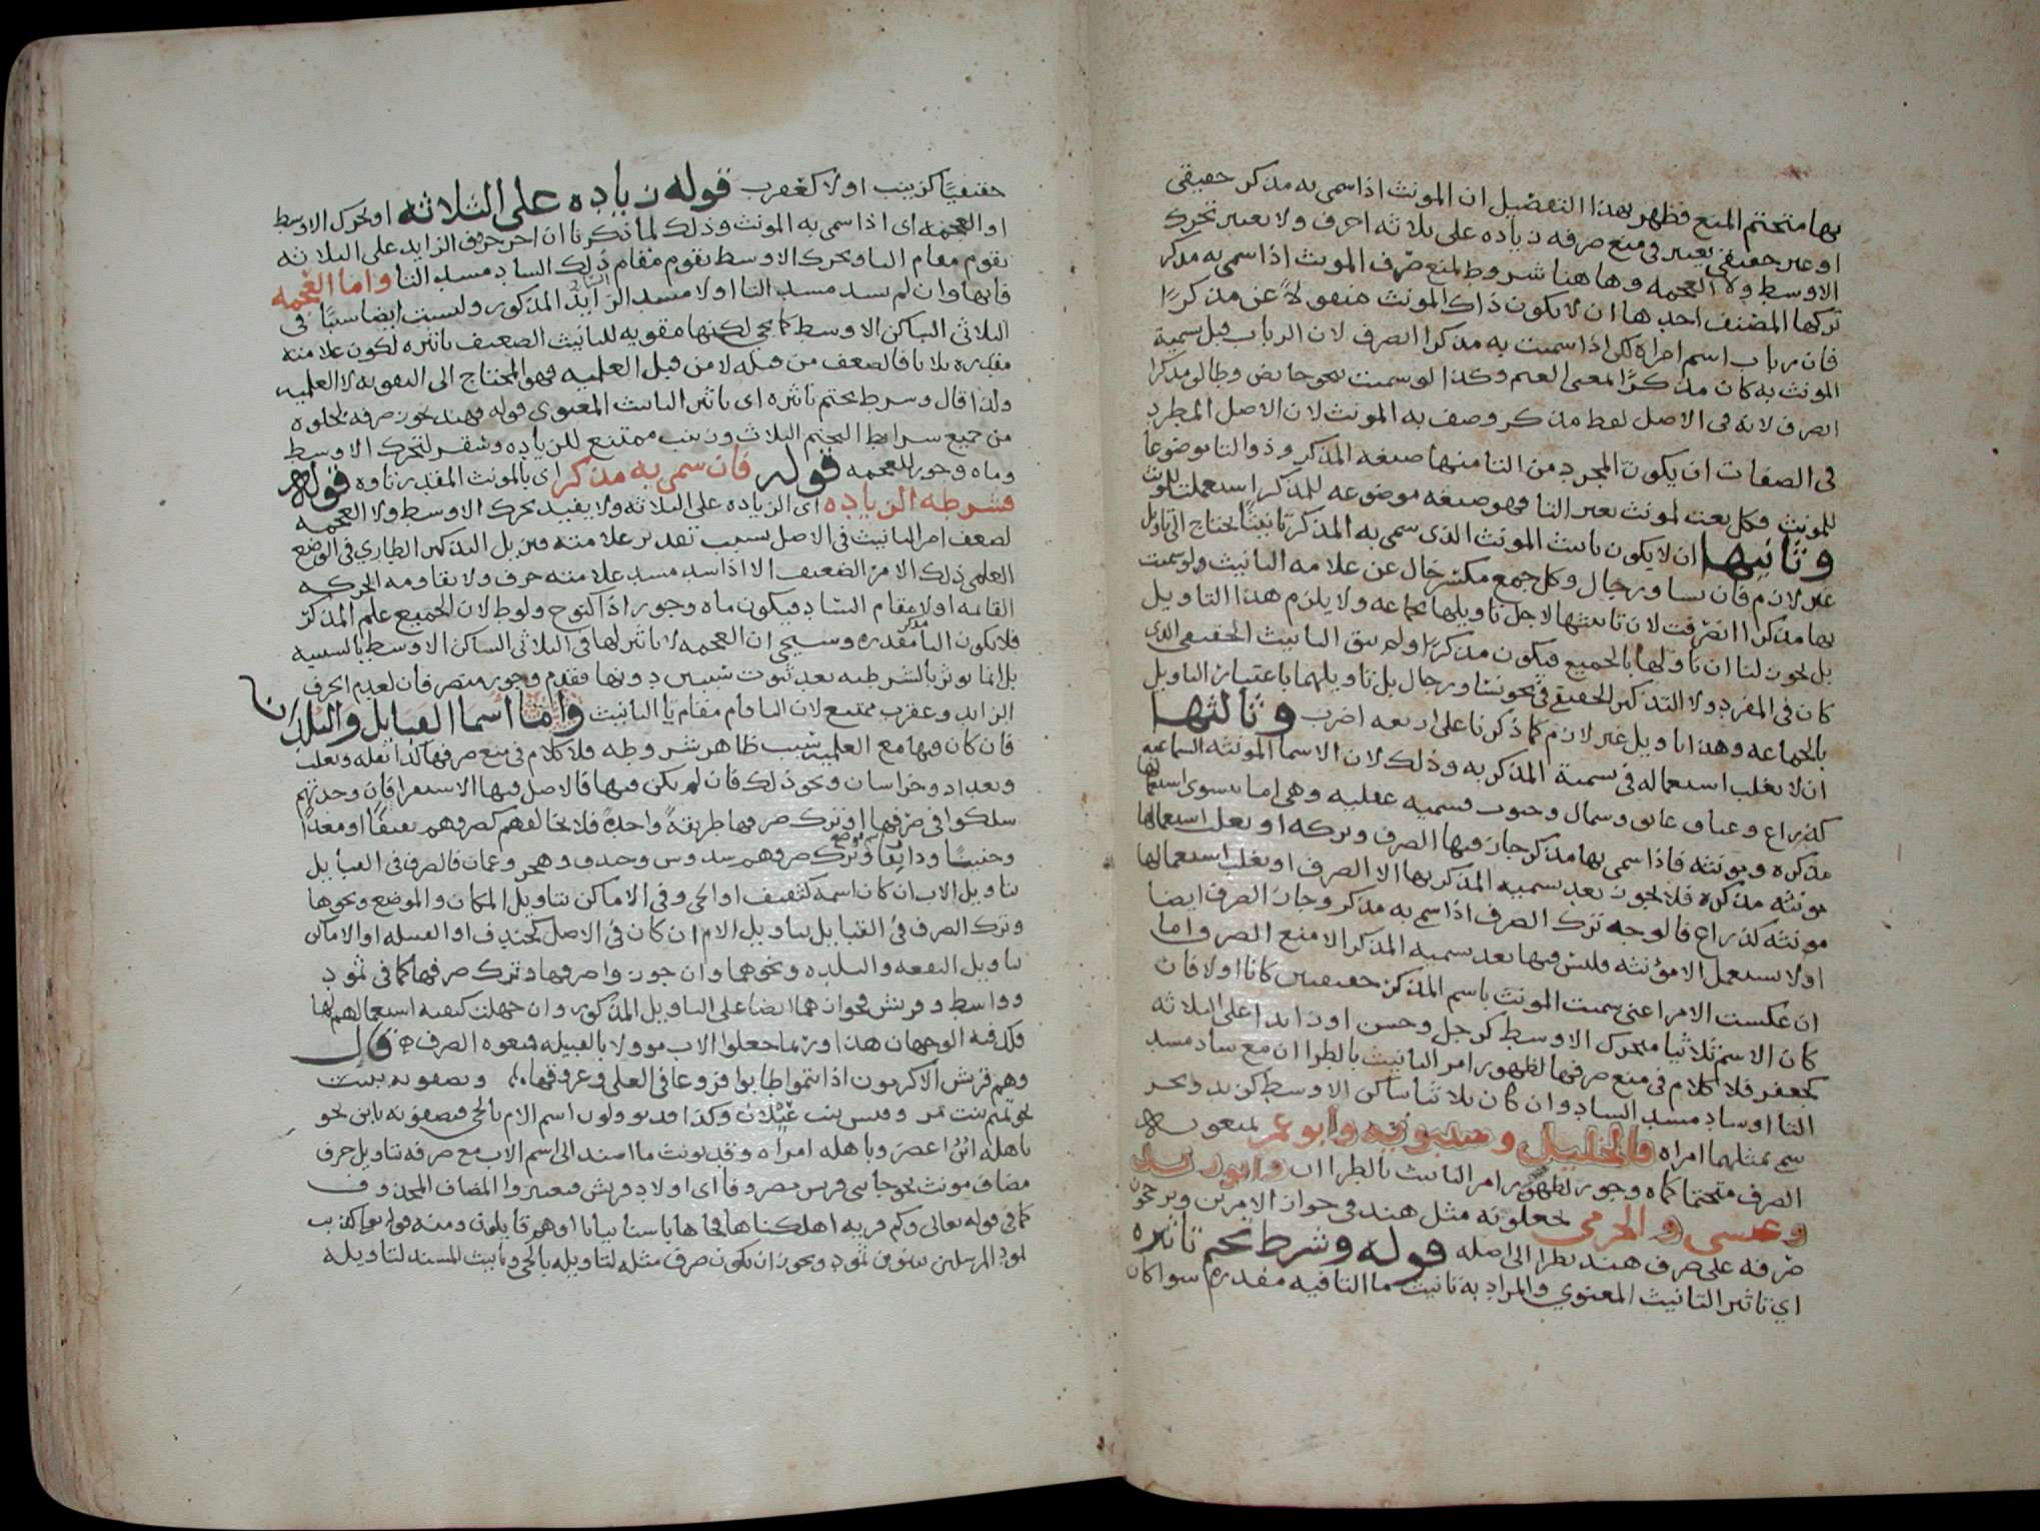 بها متحتم المنع فظهر بهذا التفصيل ان المونث اذا سمى به مذكر حقيقى
او غير حقيقى يعتبر فى منع صرفه زياده على ثلاثه احرف ولا يعتبر تحرك
الاوسط ولا العجمه وها هنا شروط لمنع صرف المونث اذا سمى به مذكر
تركها المصنف احدها ان لا يكون ذاك المونث منقولاً عن مذكرًا
فان رباب اسم امراه لكن اذا سميت به مذكرا انصرف لان الرباب قبل تسمية
المونث به كان مذكرًا لمعنى الغيم وكذا لو سميت بنحو حايض وطالق مذكرا
انصرف لانه فى الاصل لفظ مذكر وصف به المونث لان الاصل المطرد
فى الصفات ان يكون المجرد من التا منها صيغه المذكر وذو التا موضوعا
للمونث فكل نعت لمونث بغير التا فهو صيغه موضوعه للمذكر استعملت للمونث
وثانيها ان لا يكون تانيث المونث الذى سمى به المذكر تانيثًا يحتاج الى تاويل
غير لازم فان نسا ورجال وكل جمع مكسر خال عن علامه التانيث ولو سميت
بها مذكرا انصرفت لان تانيثها لاجل تاويلها بجماعه ولا يلزم هذا التاويل
بل يجوز لنا ان ناولها بالجميع فيكون مذكرًا ولم يبق التانيث الحقيقى الذى
كان فى المفرد ولا التذكير الحقيقى فى نحو نسا ورجال بل تاويلهما باعتبار التاويل
بالجماعه وهذا تاويل غير لازم كما ذكرنا على اربعه اضرب وثالثها
ان لا يغلب استعماله فى تسمية المذكر به وذلك لان الاسما المونثه السماعيه
كذراع وعناق وشمال وجنوب قسميه عقليه وهى اما يستوى استعمالها
مذكره ومونثه فاذا سمى بها مذكر جاز فيها الصرف وتركه او يغلب استعمالها
مونثه مذكره فلا يجوز بعد تسميه المذكر بها الا الصرف او يغلب استعمالها
مونثه كذراع فالوجه ترك الصرف اذا سمى به مذكر وجاز الصرف ايضا
او لا يستعمل الا مونثه فليس فيها بعد تسميه المذكر الا منع الصرف واما
ان عكست الامر اعنى سميت المونث باسم المذكر حقيقيين كانا اولا فان
كان الاسم ثلاثيا متحرك الاوسط كرجل وحسن او زايدا على الثلاثه
كجعفر فلا كلام فى منع صرفها لظهور امر التانيث بالطرا ان مع ساد مسد
التا او ساد مسد الساد وان كان ثلاثيا ساكن الاوسط كزيد وبحر
سمى بمثلهما امراه فالخليل وسيبويه وابو عمر يمنعونه
الصرف متحتما كماه وجور لظهور امر التانيث بالطرا ان وابو زيد
وعيسى والجرمى يجعلونه مثل هند فى جواز الامرين ويرجحون
صرفه على صرف هند نظرا الى اصله قوله وشرط تحتم تاثيره
اي تاثير التانيث المعنوي والمراد به تانيث ما التا فيه مقدره سوا كان
حقيقيًا كزينب اولا كعقرب قوله زياده على الثلاثه او تحرك الاوسط
او العجمه اى اذا سمى به المونث وذلك لما ذكرنا ان اخر حروف الزايد على الثلاثه
يقوم مقام التا وتحرك الاوسط يقوم مقام ذلك الساد مسد التا واما العجمه
فانها وان لم تسد مسد التا ولا مسد الزايد المذكور وليست ايضا سببًا فى
الثلاثى الساكن الاوسط كما يجى لكنها مقويه للتانيث الضعيف تاثيره لكون علامته
مقدره بلا نا فالضعف من قبله لا من قبل العلميه فهو المحتاج الى التقويه لا العلميه
ولذا قال وشرط تحتم تاثيره اى تاثير التانيث المعنوى قوله فهند يجوز صرفه لخلوه
من جميع شرايط التحتم الثلاث وزينب ممتنع للزياده وشقر لتحرك الاوسط
وماه وجور للعجمه قوله فان سمى به مذكر اى بالمونث المقدر تاوه قوله
فشرطه الزياده اى الزياده على الثلاثه ولا يفيد تحرك الاوسط ولا العجمه
لضعف امر التانيث فى الاصل بسبب تقدير علامته فيزيل التذكير الطاري فى الوضع
العلمى ذلك الامر الضعيف الا اذا سد مسد علامته حرف ولا يقاومه الحركه
القايمه اولا مقام الساد فيكون ماه وجور اذا كنوح ولوط لان الجميع علم المذكر
فلا يكون التا مقدره وسيجى ان العجمه لا تاثير لها فى الثلاثى الساكن الاوسط بالسببيه
بل انما توثر بالشرطيه بعد ثبوت سببين دونها فقدم وجور منصرفان لعدم الحرف
الزايد وعقرب ممتنع لان البا قام مقام تا التانيث واما اسما القبايل والبلدان
فان كان فيها مع العلميه سبب ظاهر بشروطه فلا كلام فى منع صرفها كباهله وتغلب
وبغداد وخراسان ونحو ذلك فان لم يكن فيها فالاصل فيها الاستقرا فان وجدتهم
سلكوا فى صرفها او ترك صرفها طريقةً واحدةً فلا تخالفهم كصرفهم ثقيفًا ومعدًا
وحنينًا ودابقًا وترك صرفهم سدوس وخندف وهجر وعمان فالصرف فى القبايل
بتاويل الاب ان كان اسمه كثقيف او الحى وفى الاماكن بتاويل المكان والموضع ونحوها
وترك الصرف فى القبايل بتاويل الام ان كان فى الاصل كخندف او القبيله او الاماكن
بتاويل البقعه والبلده ونحوهما وان جوزوا صرفها وترك صرفها كما فى ثمود
وواسط وقريش فجوازهما ايضا على التاويل المذكور وان جهلت كيفية استعمالهم لها
فلك فيه الوجهان هذا وربما جعلوا الاب موولا بالقبيله فمنعوه الصرف قال
وهم قريش الاكرمون اذا انتموا طابوا فروعا فى العلى وعروقها ويصفونه ببنت
نحو تميم بنت مر وقيس بنت غيلان وكذا قد يوولون اسم الام بالحى فيصفونه بابن نحو
باهله ابن اعصر وباهله امراه وقد يونث ما اسند الى اسم الاب مع صرفه بتاويل حرف
مضاف مونث نحو جاتنى قريش مصروفا اى اولاد قريش فيعتبروا المضاف المحذوف
كما فى قوله تعالى وكم من قريه اهلكناها فجاها باسنا بياتا او هم قايلون ومنه قوله تعالى كذبت
ثمود المرسلين بتنوين ثمود ويجوز ان يكون صرف مثله لتاويله بالحى وتانيث المسند لتاويله